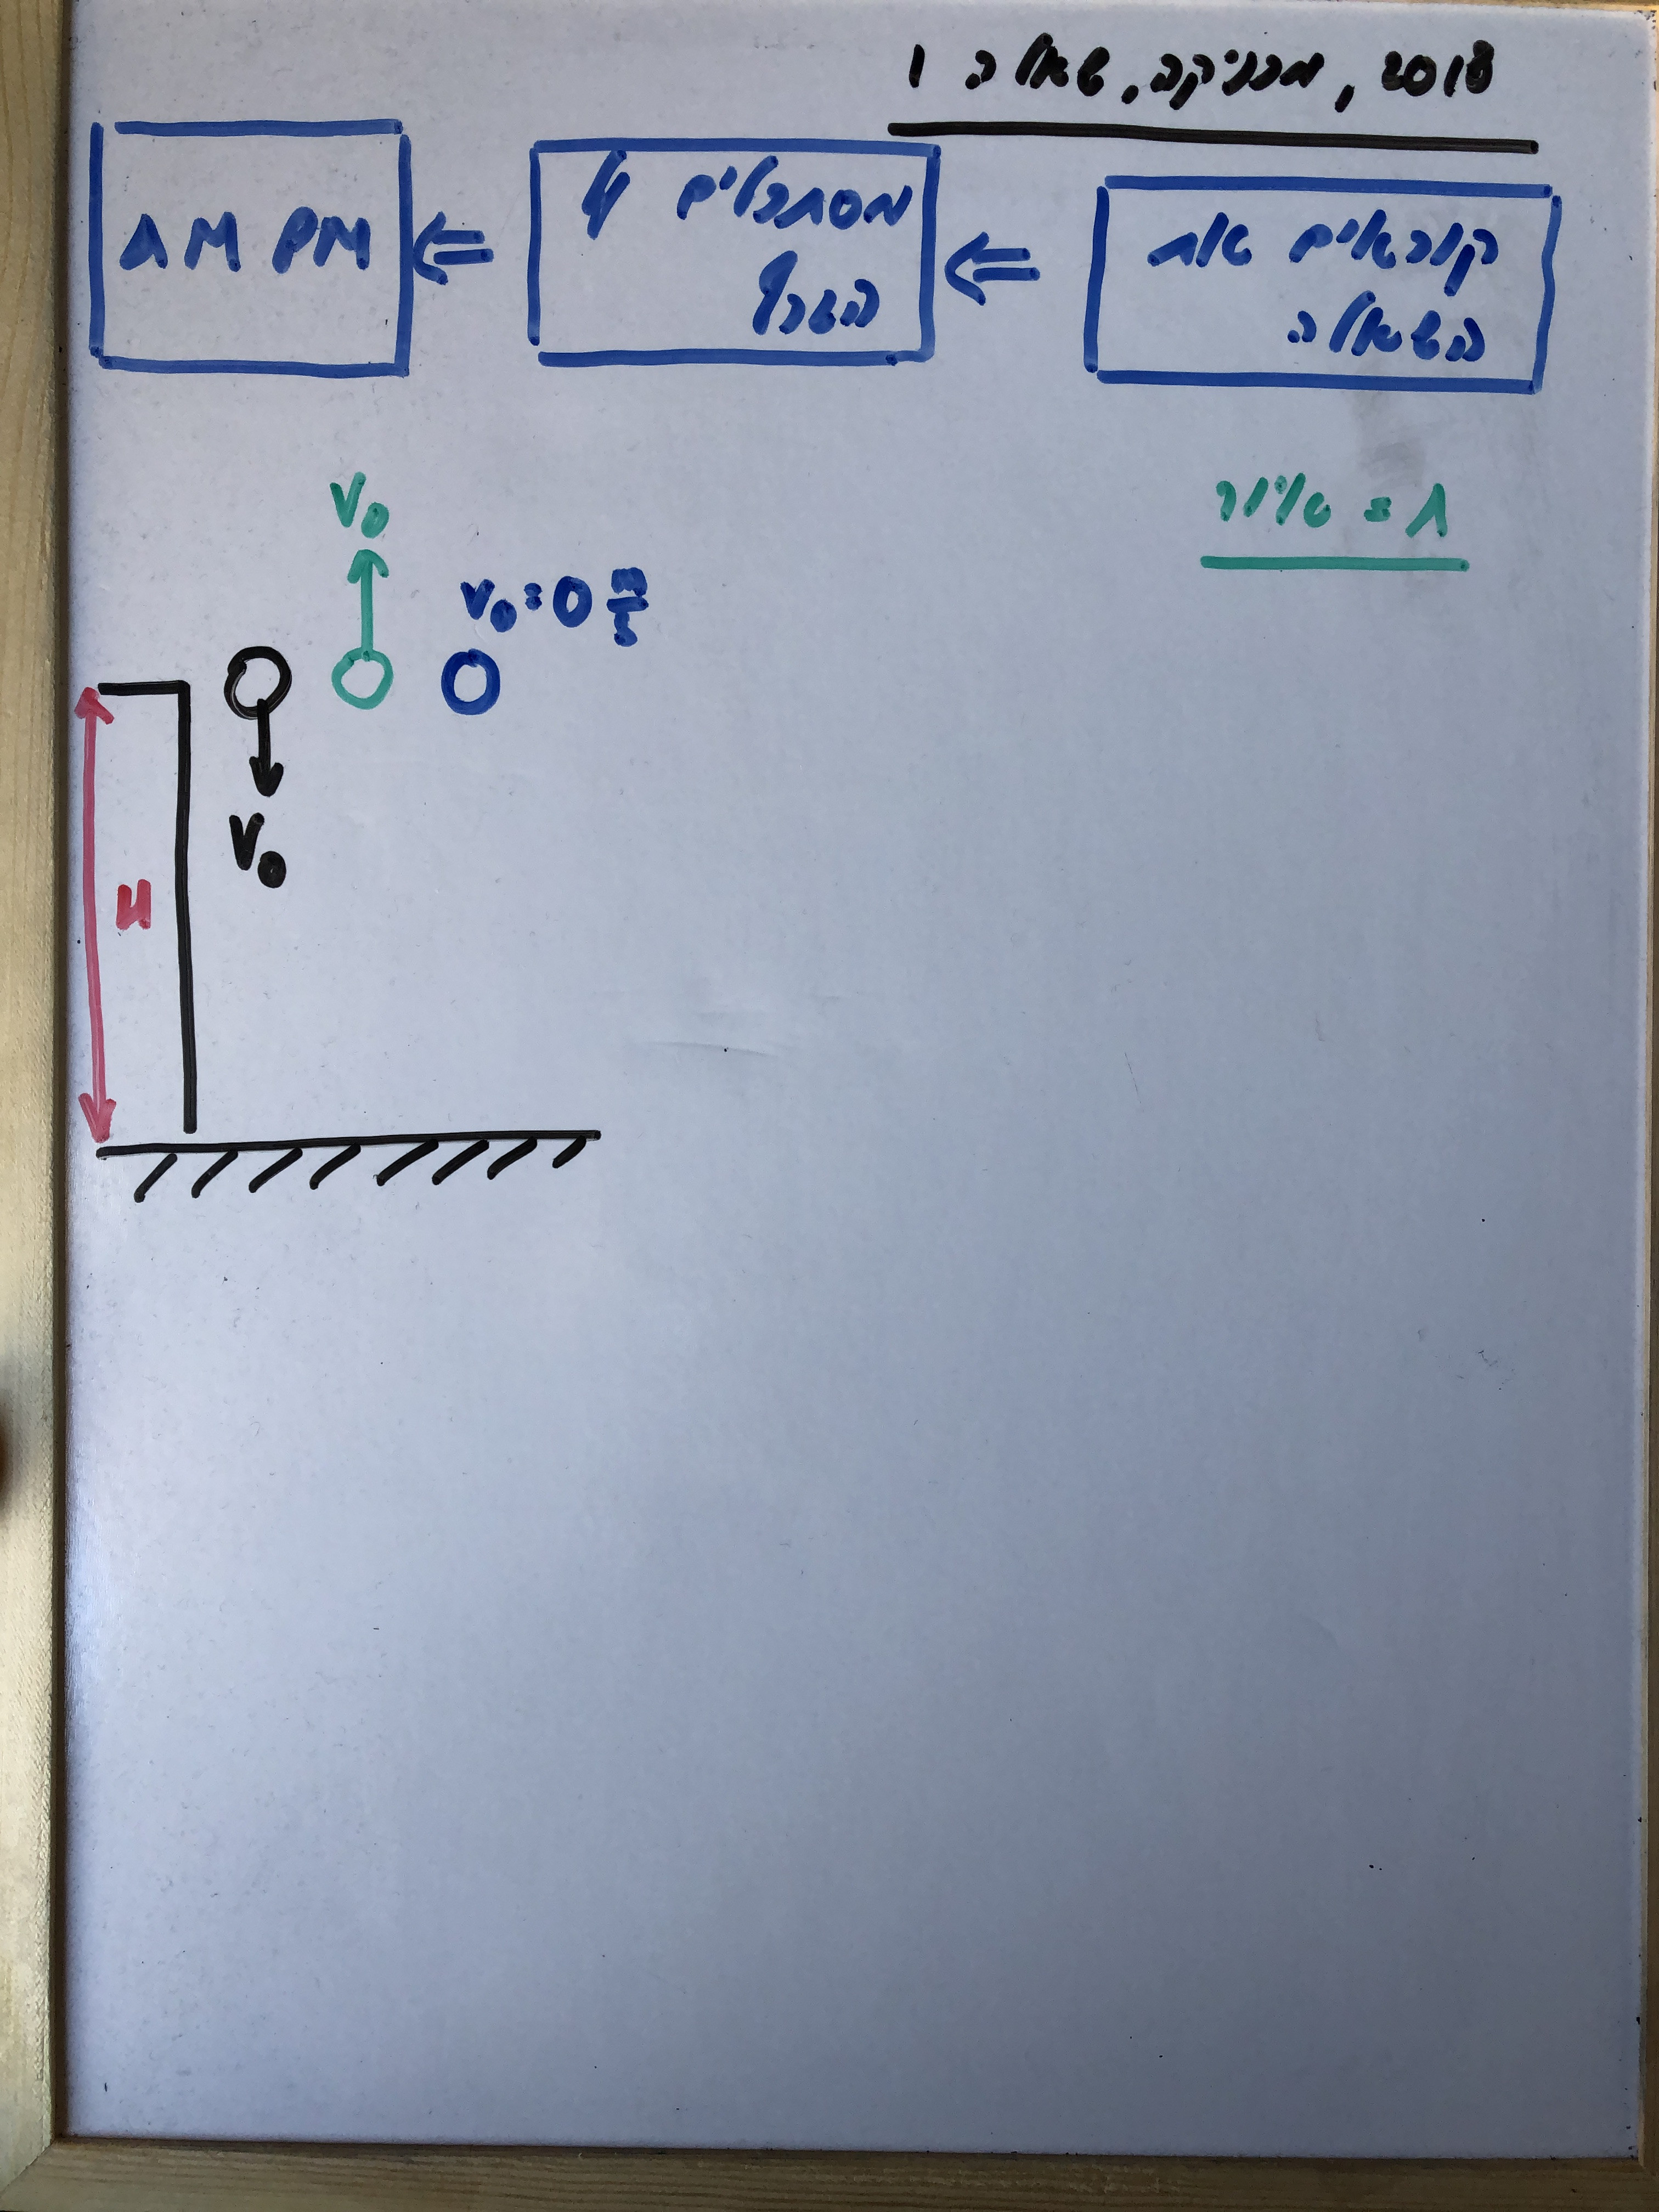 2018, מכניקה, שאלה 1
קוראים את
השאלה
⇐
מסתכלים על
הגרף
⇐
AM PM
1 = ציור
V₀
V₀ = 0 m/s
V₀
H